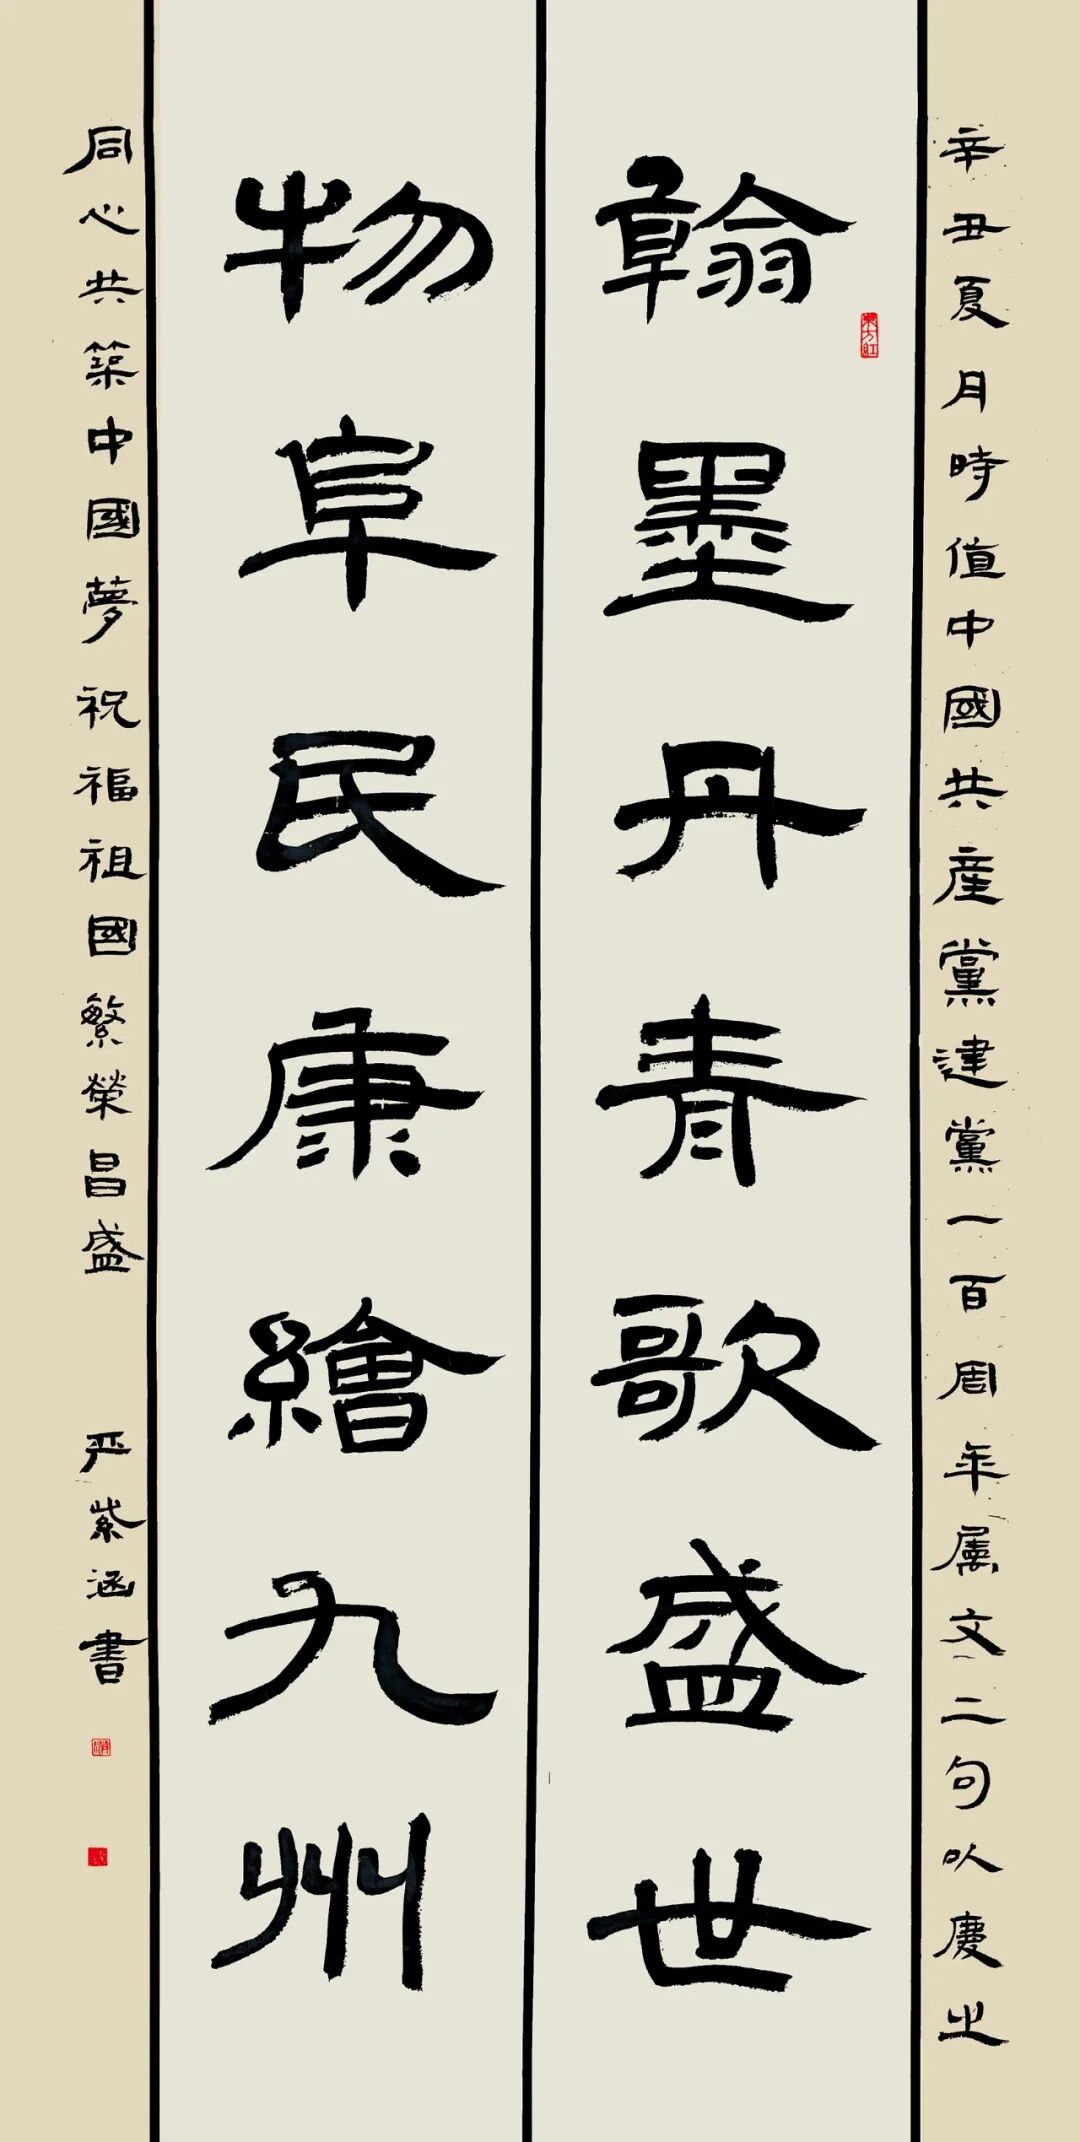 辛丑夏月時值中國共産黨建黨一百周年屬文二句以慶之
翰墨丹青歌盛世
東方紅
物阜民康繪九州
同心共築中國夢祝福祖國繁榮昌盛
严紫涵書